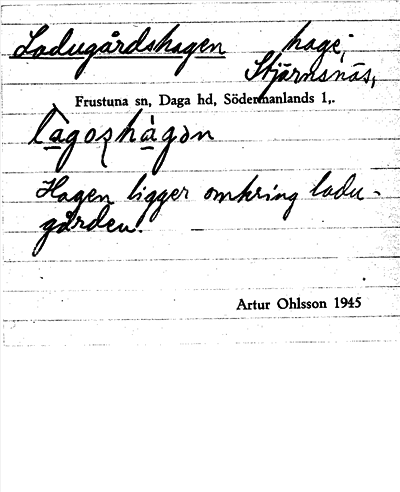 Ladugårdshagen hage;
Stjärnsnäs,
Frustuna sn, Daga hd, Södermanlands l,.
Hagen ligger omkring ladu-
gården.
Artur Ohlsson 1945